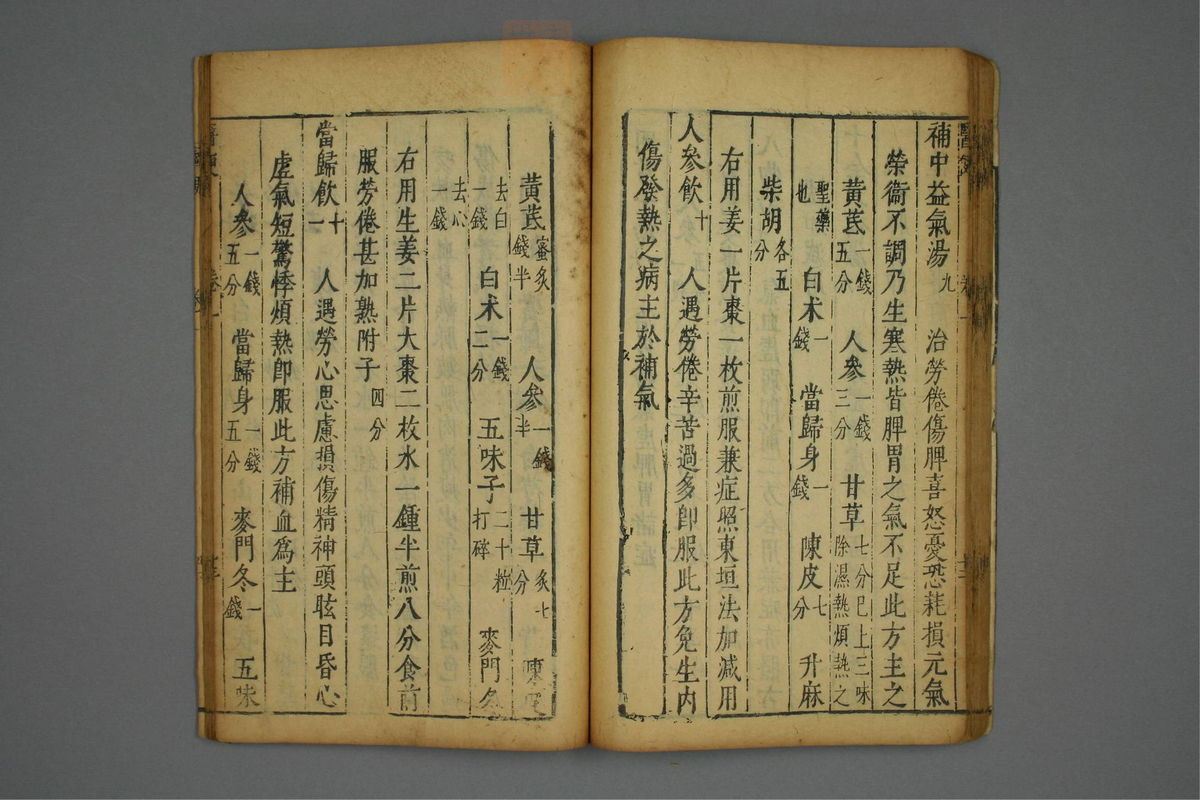 補中益氣湯九　治勞倦傷脾喜怒憂恐耗損元氣
榮衞不調乃生寒熱皆脾胃之氣不足此方主之
黃芪一錢五分　人參一錢三分　甘草七分已上三味除濕熱煩熱之
聖藥也　白朮一錢　當歸身一錢　陳皮七分　升麻
柴胡各五分
右用姜一片棗一枚煎服兼症照東垣法加减用
人參飲十　人遇勞倦辛苦過多卽服此方免生內
傷發熱之病主於補氣
黃芪蜜炙錢半　人參一錢半　甘草炙七分　陳皮
去白一錢　白朮一錢二分　五味子二十粒打碎　麥門冬
去心一錢
右用生姜二片大棗二枚水一鍾半煎八分食前
服勞倦甚加熟附子四分
當歸飲十一　人遇勞心思慮損傷精神頭眩目昏心
虛氣短驚悸煩熱卽服此方補血爲主
人參一錢五分　當歸身一錢五分　麥門冬一錢　五味